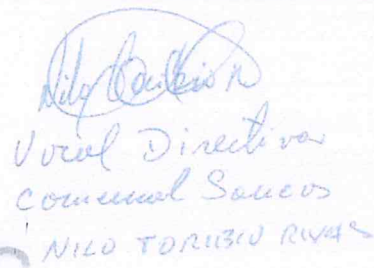 Vocal Directiva
Comunal Sancos
NILO TORIBIO RIVAS